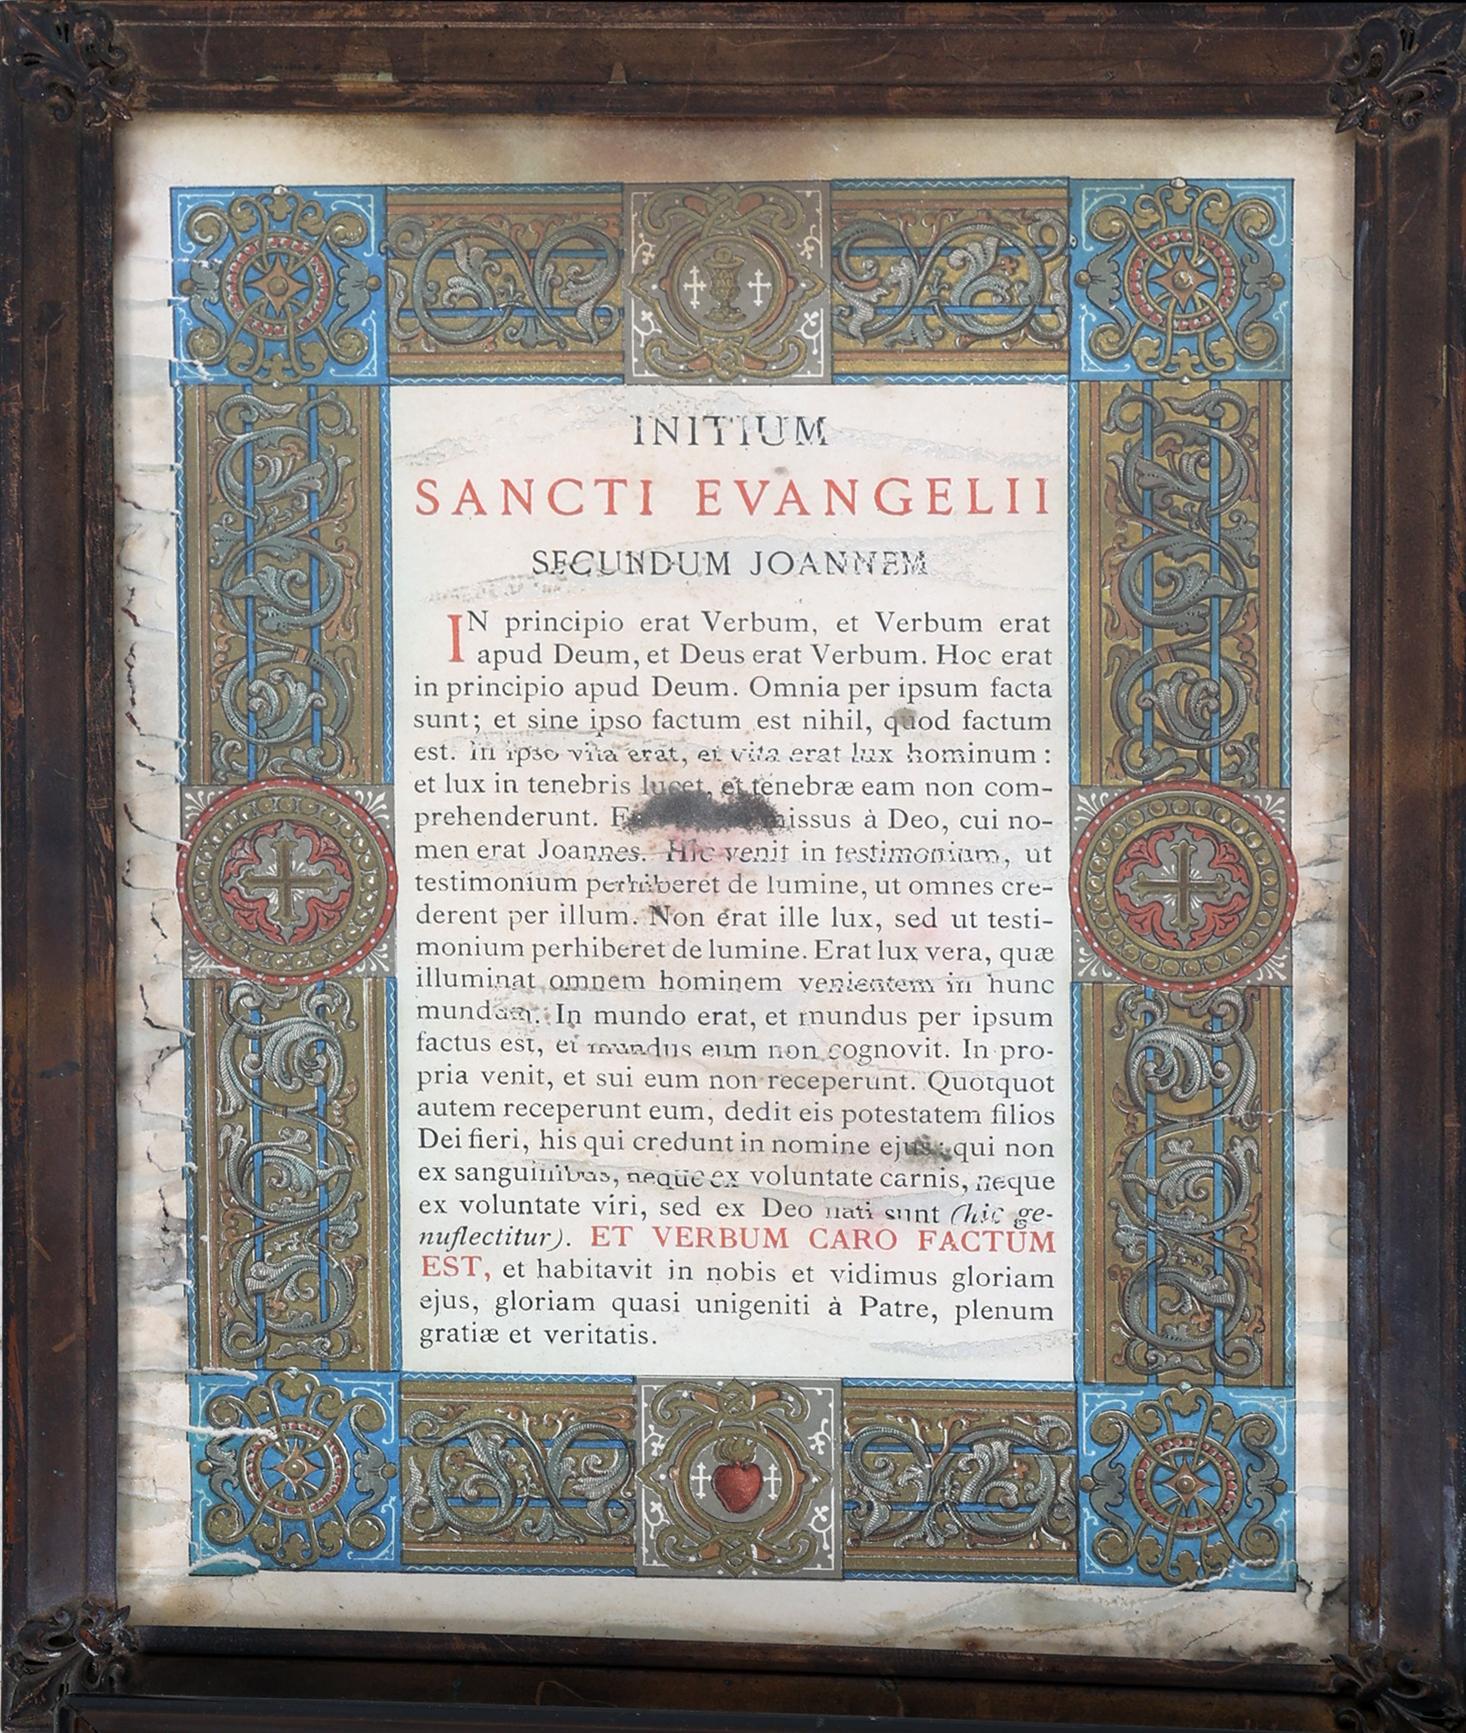 INITIUM
SANCTI EVANGELII
SECUNDUM JOANNEM
IN principio erat Verbum, et Verbum erat
apud Deum, et Deus erat Verbum. Hoc erat
in principio apud Deum. Omnia per ipsum facta
sunt; et sine ipso factum est nihil, quod factum
est. In ipso vita erat, et vita erat lux hominum :
et lux in tenebris lucet, et tenebræ eam non com-
prehenderunt. à Deo, cui no-
men erat Joannes. Hic venit in testimonium, ut
testimonium perhiberet de lumine, ut omnes cre-
derent per illum. Non erat ille lux, sed ut testi-
monium perhiberet de lumine. Erat lux vera, quæ
illuminat omnem hominem venientem in hunc
mundum. In mundo erat, et mundus per ipsum
factus est, et mundus eum non cognovit. In pro-
pria venit, et sui eum non receperunt. Quotquot
autem receperunt eum, dedit eis potestatem filios
Dei fieri, his qui credunt in nomine ejus : qui non
ex sanguinibus, neque ex voluntate carnis, neque
ex voluntate viri, sed ex Deo nati sunt (hic ge-
nuflectitur). ET VERBUM CARO FACTUM
EST, et habitavit in nobis et vidimus gloriam
ejus, gloriam quasi unigeniti à Patre, plenum
gratiæ et veritatis.